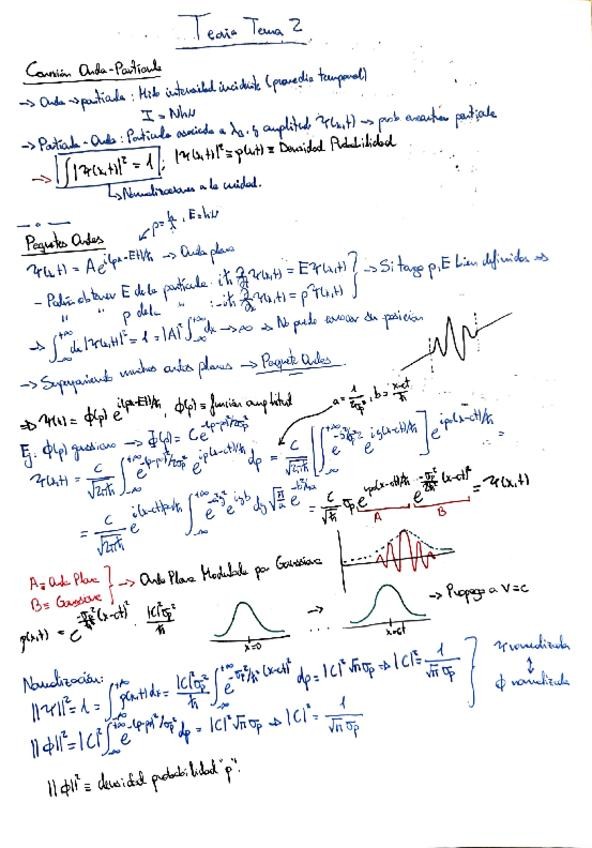 Teoria Tema 2
Conexión Onda-Partícula
→ Onda → partícula: Mido intensidad incidente (promedio temporal)
I = Nhν
→ Partícula-Onda: Partícula asociada a λ, y amplitud Ψ(x,t) → prob encontrar partícula
→ ∫|Ψ(x,t)|² = 1 ; |Ψ(x,t)|² = ρ(x,t) ≡ Densidad Probabilidad
↳ Normalizamos a la unidad.
Paquetes Ondas
p = h/λ, E = hν
Ψ(x,t) = A e^{i(px-Et)/ħ} → Onda plana
- Podría obtener E de la partícula: iħ ∂/∂t Ψ(x,t) = E Ψ(x,t)
" " p de la " : -iħ ∂/∂x Ψ(x,t) = p Ψ(x,t) } → Si tengo p, E bien definidos ⇒
⇒ ∫_{-∞}^{+∞} dx |Ψ(x,t)|² = 1 = |A|² ∫_{-∞}^{+∞} dx → ∞ ⇒ No puedo conocer su posición
→ Superponiendo muchas ondas planas → Paquete Ondas.
⇒ Ψ(x) = ϕ(p) e^{i(px-Et)/ħ}, ϕ(p) ≡ función amplitud
a = 1/2σp², b = (x-ct)/ħ
Ej: ϕ(p) gaussiana → ϕ(p) = C e^{-(p-p₀)²/2σp²}
Ψ(x,t) = C/√(2πħ) ∫_{-∞}^{+∞} e^{-(p-p₀)²/2σp²} e^{ip(x-ct)/ħ} dp = C/√(2πħ) [∫_{-∞}^{+∞} e^{-z²/2σp²} e^{iz(x-ct)/ħ}] e^{ip₀(x-ct)/ħ} =
= C/√(2πħ) e^{i(x-ct)p₀/ħ} ∫_{-∞}^{+∞} e^{-az²} e^{izb} dz √(π/a) e^{-b²/4a} = C/√ħ σp e^{ip₀(x-ct)/ħ} e^{-σp²/2ħ² (x-ct)²} = Ψ(x,t)
A B
A ≡ Onda Plana
B ≡ Gaussiana } → Onda Plana Modulada por Gaussiana
ρ(x,t) = e^{-σp²/ħ² (x-ct)²} · |C|²σp²/ħ
x=0 → ... x=ct → Propaga a V=c
Normalización:
||Ψ||² = 1 = ∫_{-∞}^{+∞} ρ(x,t) dx = |C|²σp²/ħ ∫_{-∞}^{+∞} e^{-σp²/ħ² (x-ct)²} dp = |C|² √π σp ⇒ |C|² = 1/(√π σp)
||ϕ||² = |C|² ∫_{-∞}^{+∞} e^{-(p-p₀)²/σp²} dp = |C|² √π σp ⇒ |C|² = 1/(√π σp)
Ψ normalizada
↕
ϕ normalizada
||ϕ||² ≡ densidad probabilidad "p".